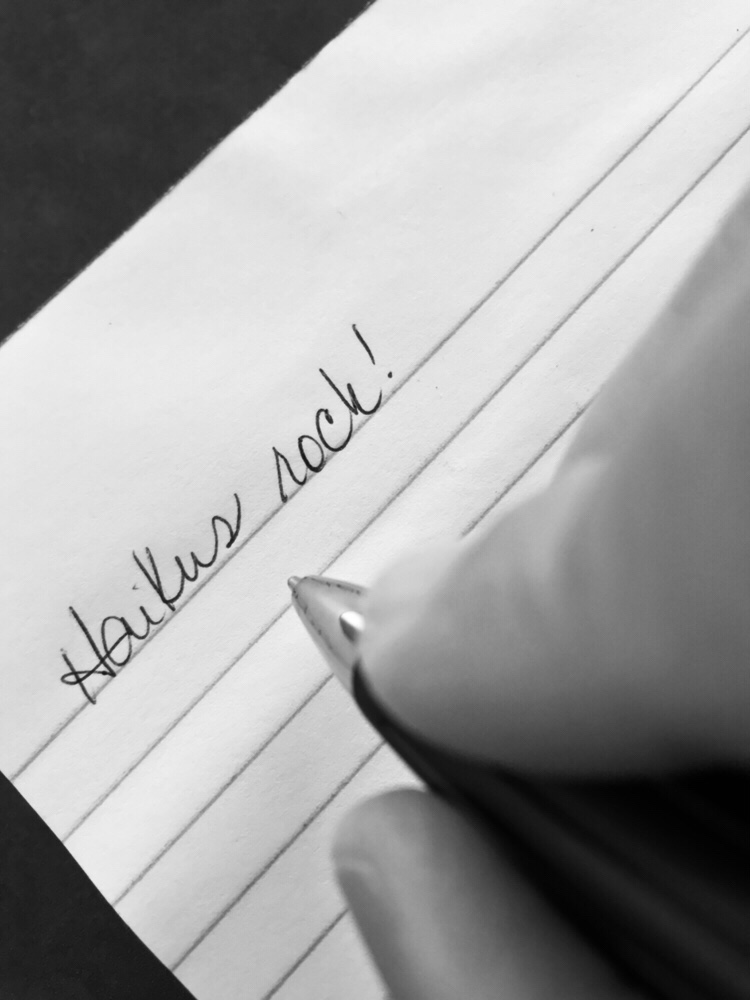 Haikus rock!